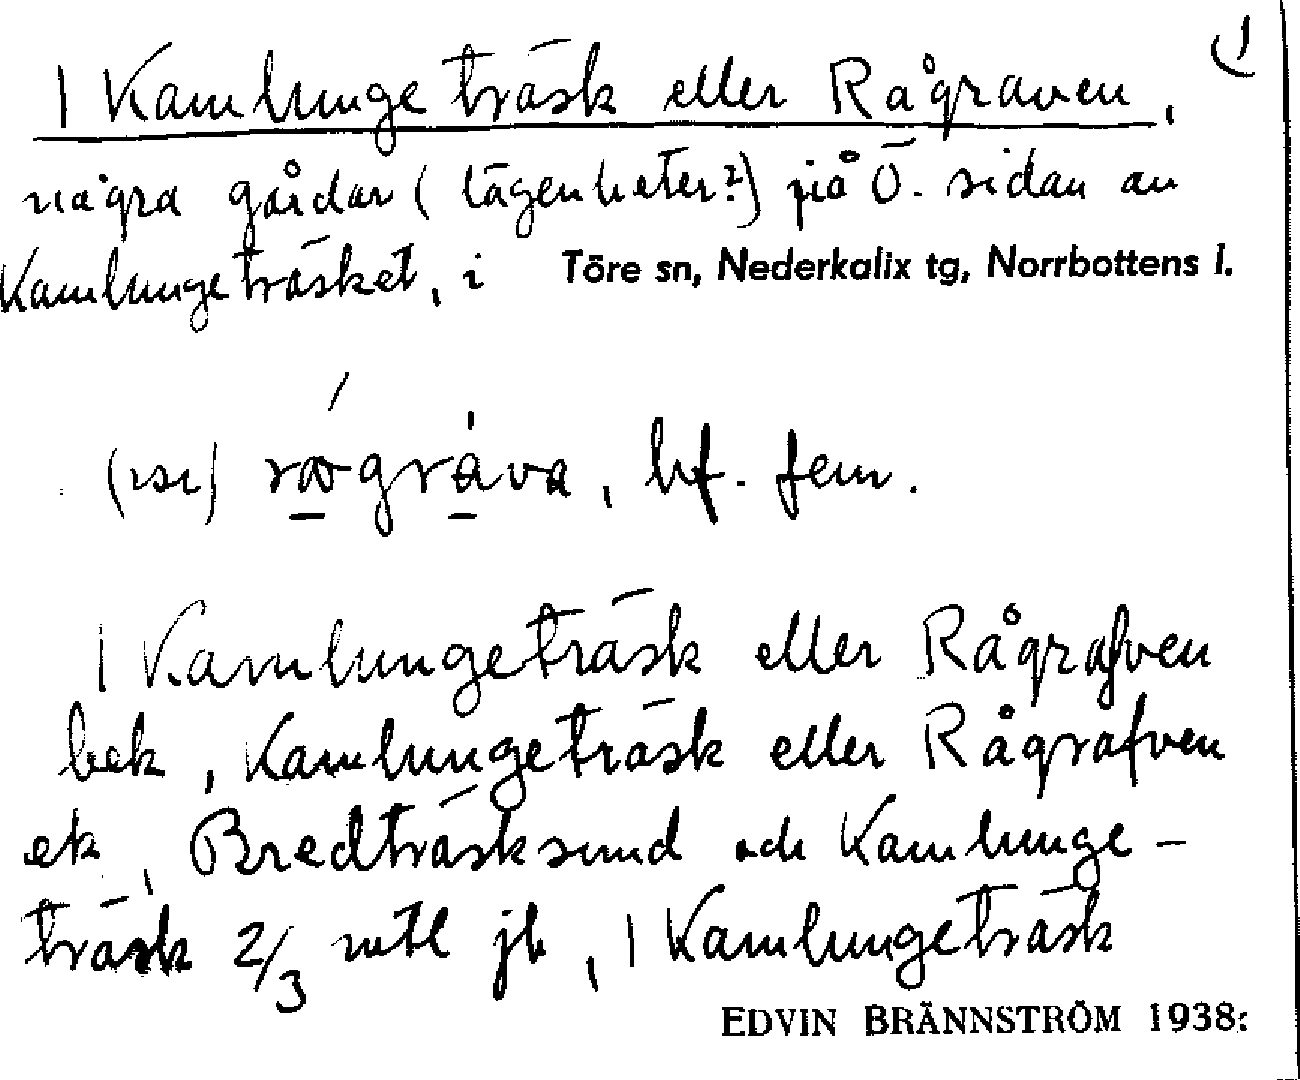 1)
1 Kamlungeträsk eller Rågraven,
några gårdar (lägenheter?) på Ö. sidan av
Kamlungeträsket, i Töre sn, Nederkalix tg, Norrbottens l.
gråva, bf. fem.
1 Kamlungeträsk eller Rågrafven
bek, Kamlungeträsk eller Rågrafven
ek, Bredträsksund och Kamlunge-
träsk 2/3 mtl jb, 1 Kamlungeträsk
EDVIN BRÄNNSTRÖM 1938: